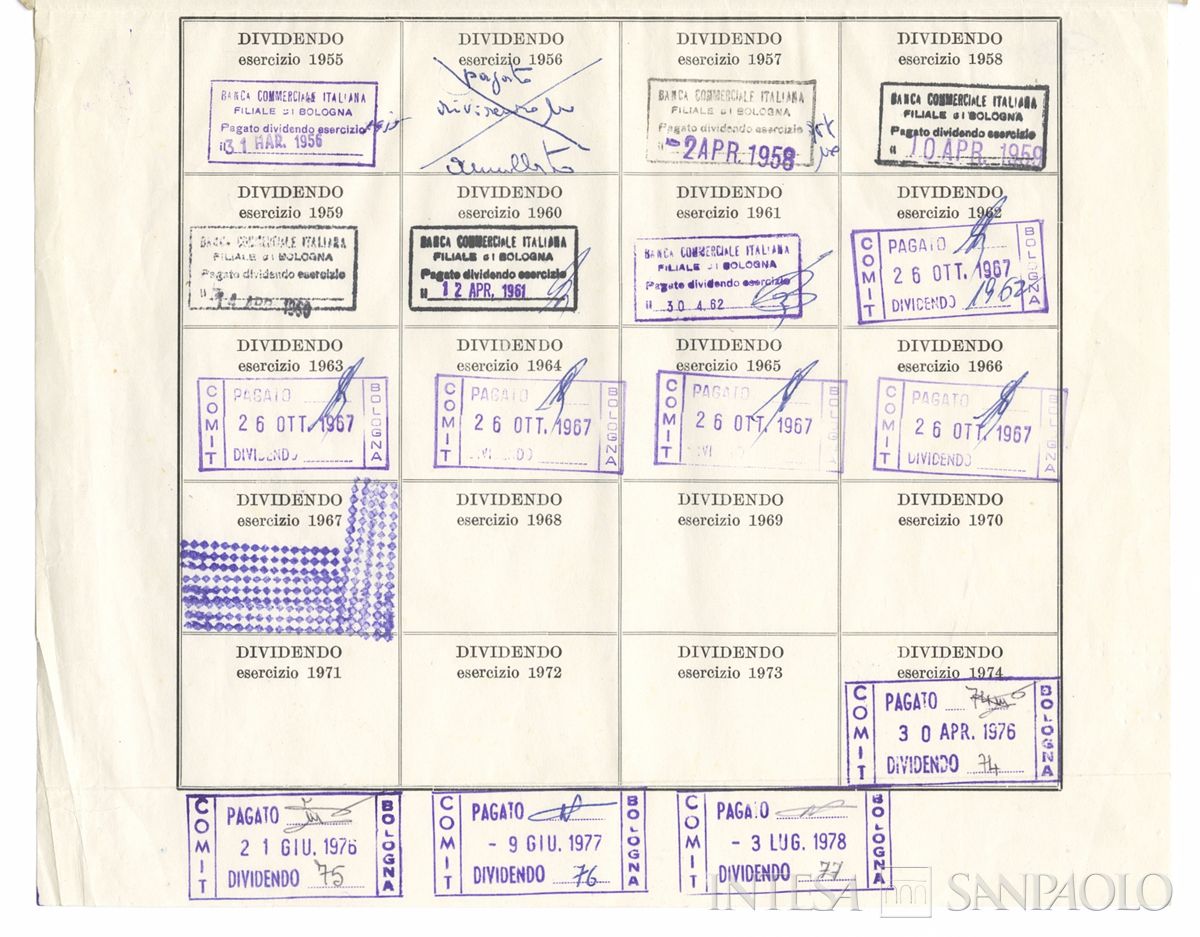 DIVIDENDO
esercizio 1955
BANCA COMMERCIALE ITALIANA
FILIALE DI BOLOGNA
Pagato dividendo esercizio 1955
il 31 MAR. 1956
DIVIDENDO
esercizio 1956
pagato
annullato
DIVIDENDO
esercizio 1957
BANCA COMMERCIALE ITALIANA
FILIALE DI BOLOGNA
Pagato dividendo esercizio
il - 2 APR. 1958
DIVIDENDO
esercizio 1958
BANCA COMMERCIALE ITALIANA
FILIALE DI BOLOGNA
Pagato dividendo esercizio
il 10 APR. 1959
DIVIDENDO
esercizio 1959
BANCA COMMERCIALE ITALIANA
FILIALE DI BOLOGNA
Pagato dividendo esercizio
il 14 APR. 1960
DIVIDENDO
esercizio 1960
BANCA COMMERCIALE ITALIANA
FILIALE DI BOLOGNA
Pagato dividendo esercizio
il 12 APR. 1961
DIVIDENDO
esercizio 1961
BANCA COMMERCIALE ITALIANA
FILIALE DI BOLOGNA
Pagato dividendo esercizio
il 30 4.62
DIVIDENDO
esercizio 1962
COMIT
PAGATO
26 OTT. 1967
DIVIDENDO 1962
BOLOGNA
DIVIDENDO
esercizio 1963
COMIT
PAGATO
26 OTT. 1967
DIVIDENDO
BOLOGNA
DIVIDENDO
esercizio 1964
COMIT
PAGATO
26 OTT. 1967
DIVIDENDO
BOLOGNA
DIVIDENDO
esercizio 1965
COMIT
PAGATO
26 OTT. 1967
DIVIDENDO
BOLOGNA
DIVIDENDO
esercizio 1966
COMIT
PAGATO
26 OTT. 1967
DIVIDENDO
BOLOGNA
DIVIDENDO
esercizio 1967
DIVIDENDO
esercizio 1968
DIVIDENDO
esercizio 1969
DIVIDENDO
esercizio 1970
DIVIDENDO
esercizio 1971
DIVIDENDO
esercizio 1972
DIVIDENDO
esercizio 1973
DIVIDENDO
esercizio 1974
COMIT
PAGATO
30 APR. 1976
DIVIDENDO 74
BOLOGNA
COMIT
PAGATO
21 GIU. 1976
DIVIDENDO 75
BOLOGNA
COMIT
PAGATO
- 9 GIU. 1977
DIVIDENDO 76
BOLOGNA
COMIT
PAGATO
- 3 LUG. 1978
DIVIDENDO 77
BOLOGNA
INTESA SANPAOLO